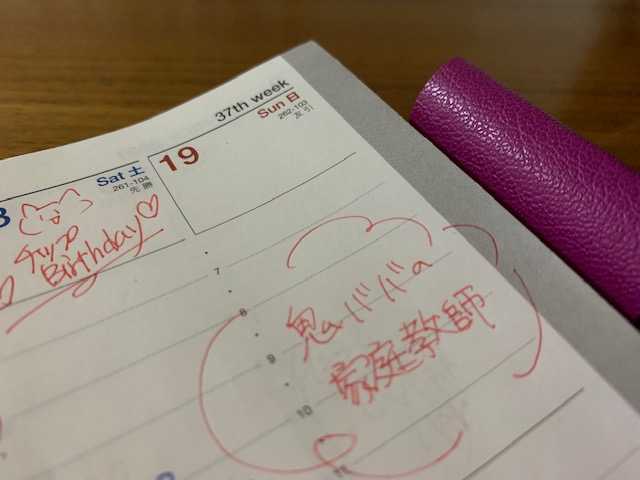 37th week
Sat 土
261-104
先勝
チップ
Birthday
19
Sun 日
262-103
友引
7
8
9
10
11
鬼ババの
家庭教師